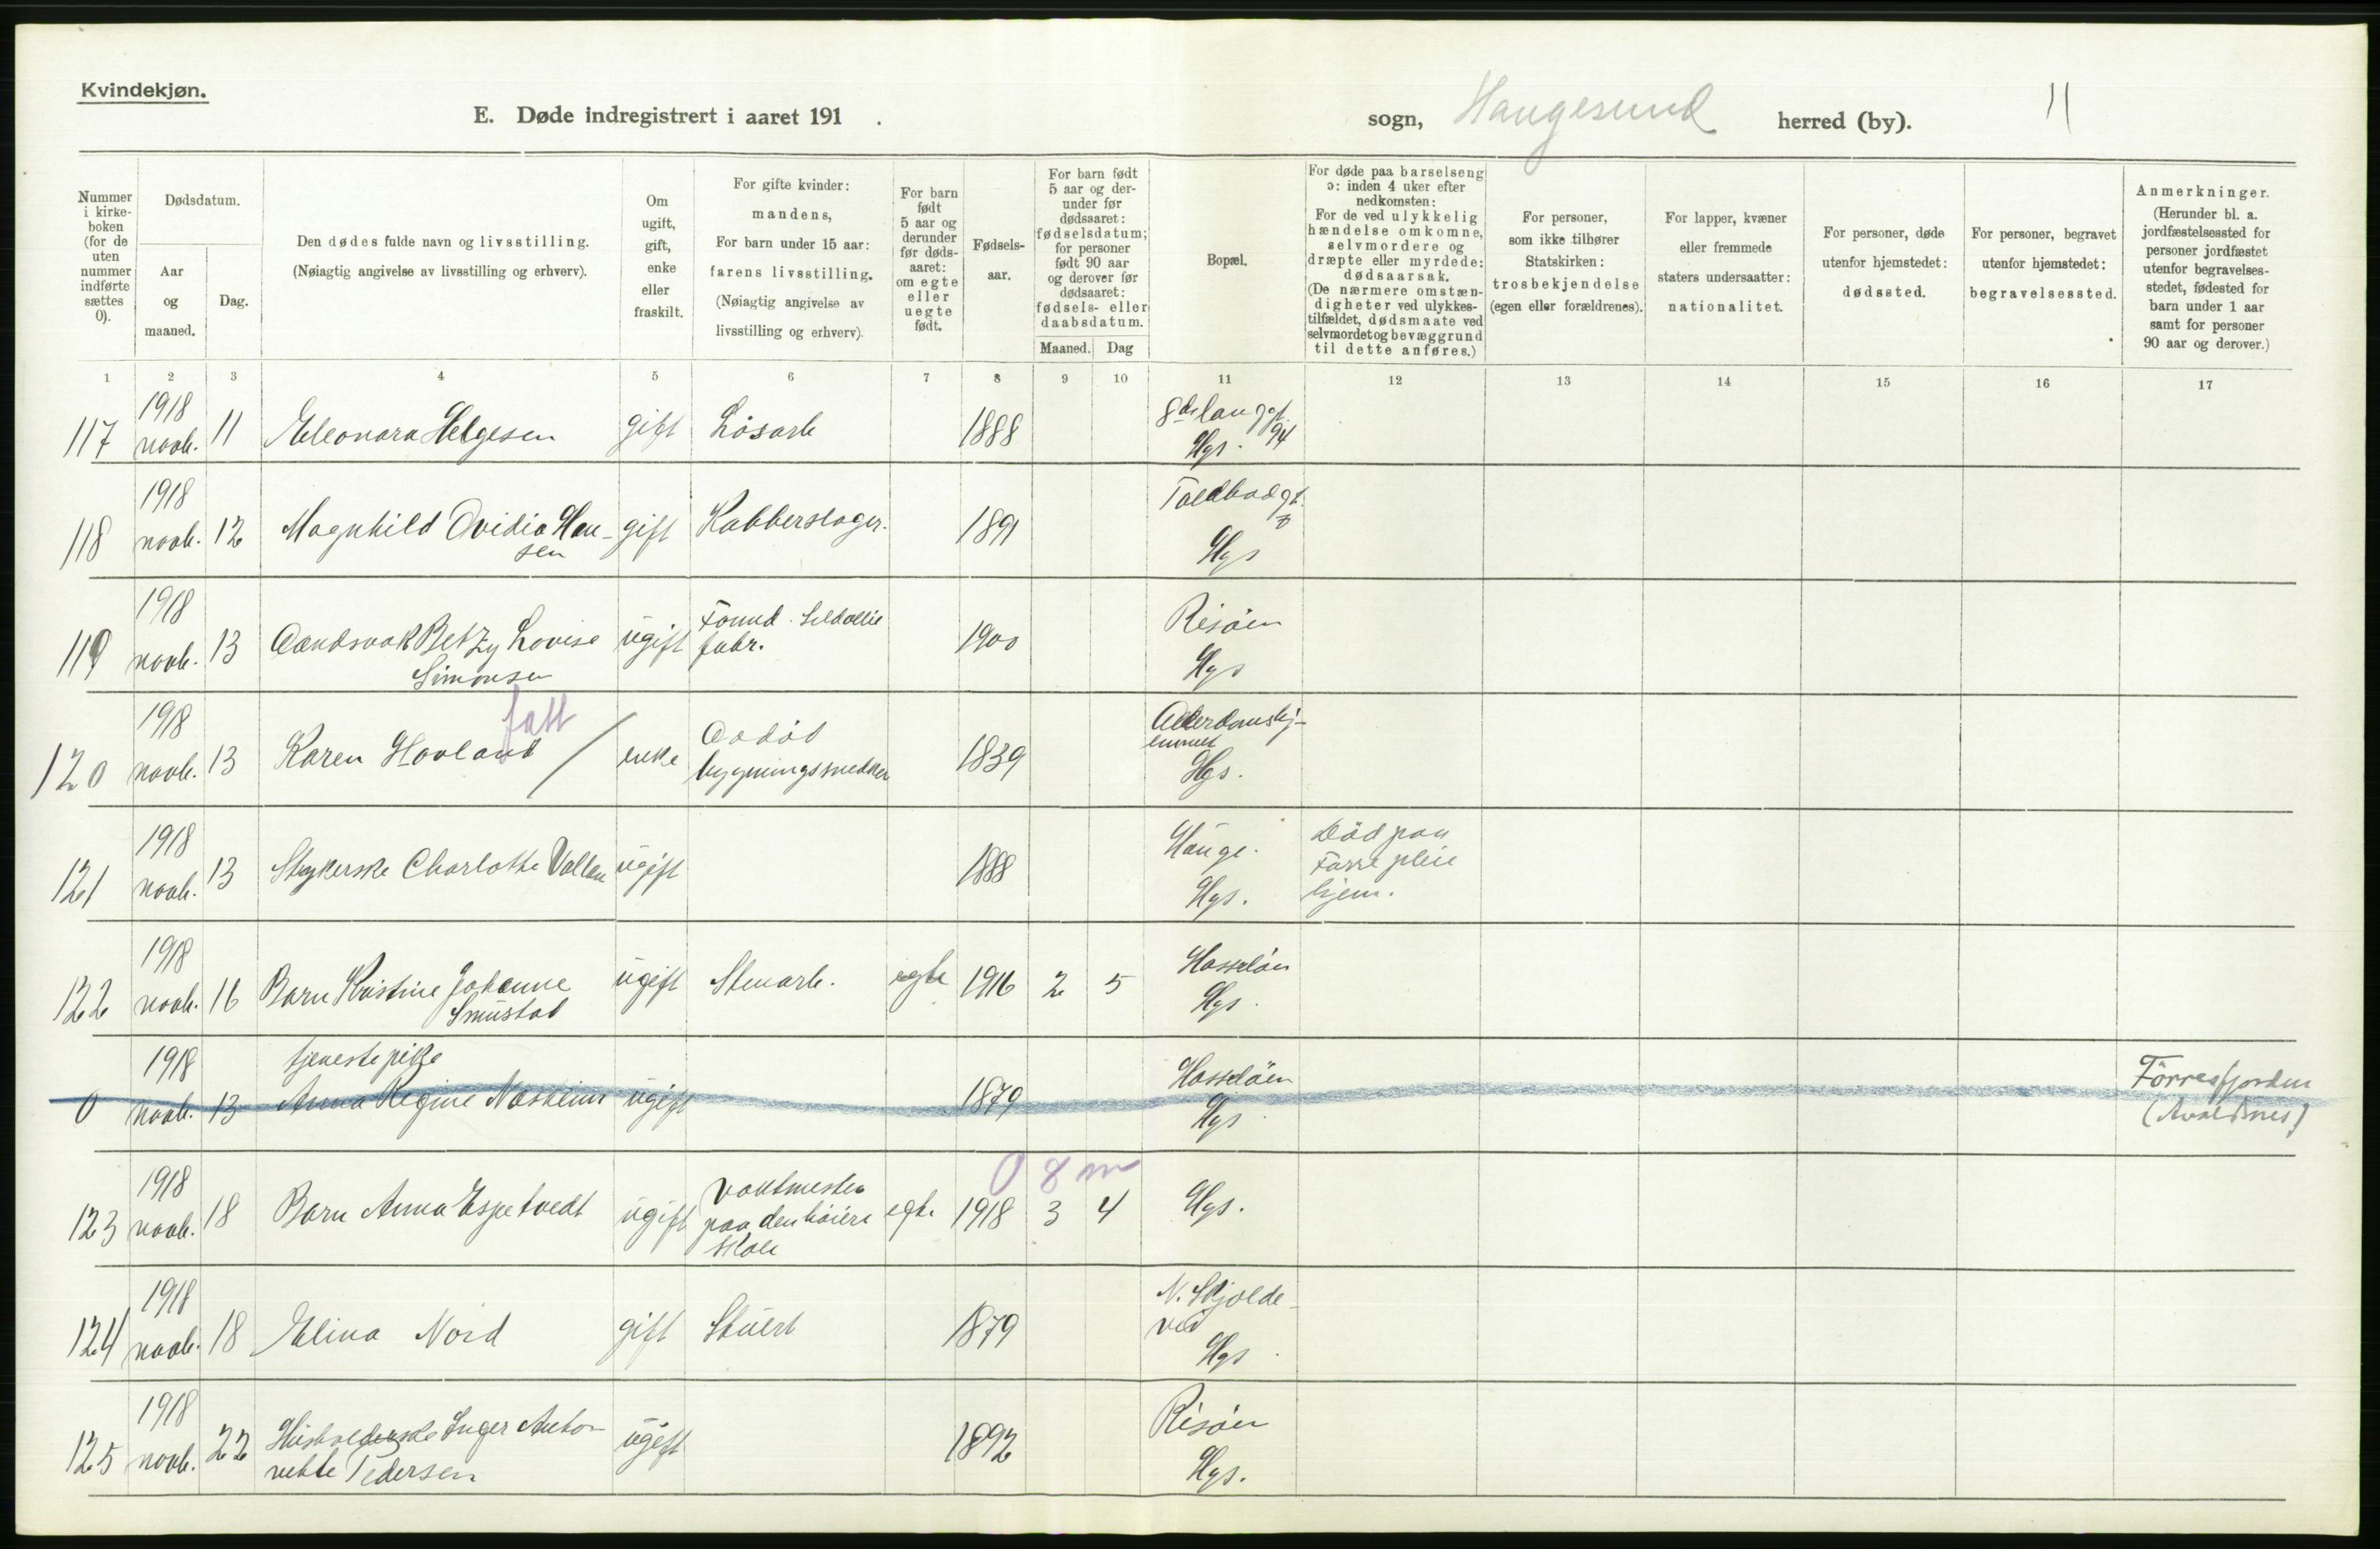 Kvindekjøn.
E. Døde indregistrert i aaret 191 . sogn, Haugesund herred (by). 11
Nummer i kirke-boken (for de uten nummer indførte sættes 0).
Dødsdatum.
Aar og maaned.
Dag.
Den dødes fulde navn og livsstilling.
(Nøiagtig angivelse av livsstilling og erhverv).
Om ugift, gift, enke eller fraskilt.
For gifte kvinder: mandens,
For barn under 15 aar: farens livsstilling.
(Nøiagtig angivelse av livsstilling og erhverv).
For barn født 5 aar og derunder før døds-aaret: om egte eller uegte født.
Fødsels-aar.
For barn født 5 aar og der-under før dødsaaret: fødselsdatum; for personer født 90 aar og derover før dødsaaret: fødsels- eller daabsdatum.
Maaned. Dag
Bopæl.
For døde paa barselseng ɔ: inden 4 uker efter nedkomsten:
For de ved ulykkelig hændelse omkomne, selvmordere og dræpte eller myrdede: dødsaarsak.
(De nærmere omstæn-digheter ved ulykkes-tilfældet, dødsmaate ved selvmordet og bevæggrund til dette anføres.)
For personer, som ikke tilhører Statskirken: trosbekjendelse (egen eller forældrenes).
For lapper, kvæner eller fremmede staters undersaatter: nationalitet.
For personer, døde utenfor hjemstedet: dødssted.
For personer, begravet utenfor hjemstedet: begravelsessted.
Anmerkninger.
(Herunder bl. a. jordfæstelsessted for personer jordfæstet utenfor begravelses-stedet, fødested for barn under 1 aar samt for personer 90 aar og derover.)
1 2 3 4 5 6 7 8 9 10 11 12 13 14 15 16 17
1918 8de langgt.
117 novb. 11 Eleonora Helgesen gift Løsarb 1888 Hgs. 94
1918 Toldbodgt. 7
118 novb. 12 Magnhild Ovidia Han- gift Kobberslager. 1891
sen Hgs
1918 Formd. Sildollie Risöen
119 novb. 13 Aandsvak Betzy Lovise ugift fabr. 1900
Simonsen Hgs
1918 fatt Alderdomshj-
120 novb. 13 Karen Hovland / enke Avdöd 1839 emmet
bygningssnedker Hgs.
1918 Hauge. Död paa
121 novb. 13 Strykerske Charlotte Vallan ugift 1888 Förre pleie
Hgs. hjem.
1918 Hasselöen
122 novb. 16 Barn Kristine Johanne ugift Stenarb. egte 1916 2 5
Smistad Hgs.
1918 tjenestepike Hasselöen Förresfjorden
0 novb. 13 Anna Regine Næsheim ugift 1879 Hgs. (Avaldsnes)
0 8 m
1918 Vaktmester
123 novb. 18 Barn Anna Espetvedt ugift paa den höiere egte 1918 3 4 Hgs.
skole
1918 N. Skjolde-
124 novb. 18 Elina Nord gift Stuert 1879 vei
Hgs.
1918 Husholderske Inger Anto- Risöen
125 novb. 22 nette Pedersen ugift 1892 Hgs.